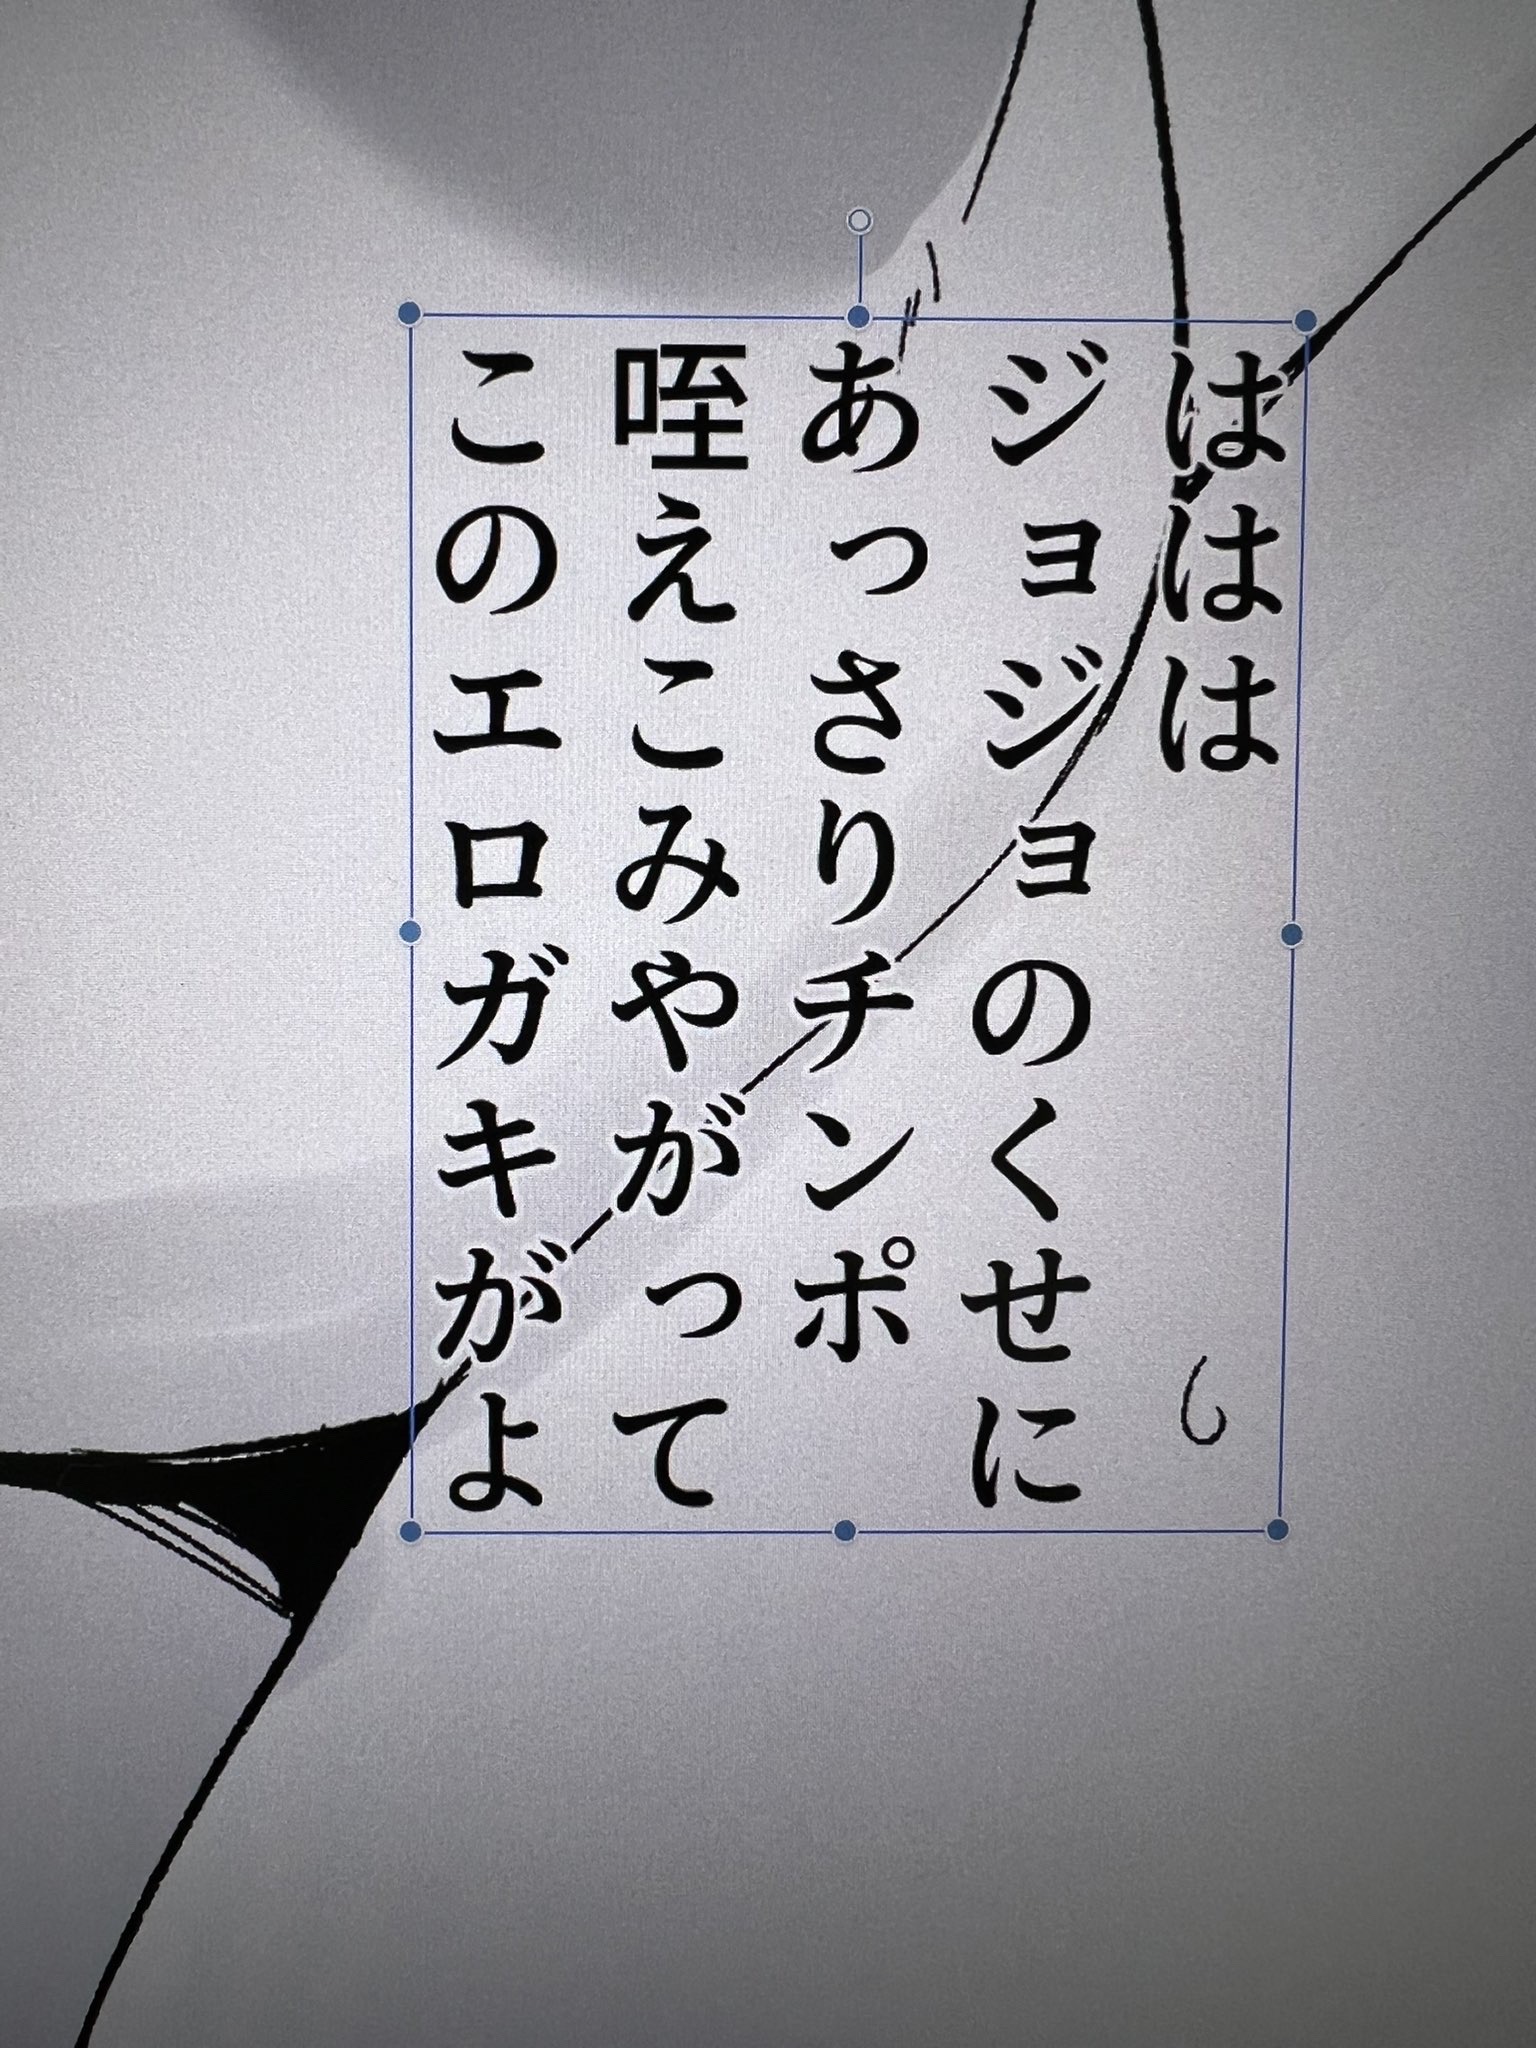 ははは
ジョジョのくせに
あっさりチンポ
咥えこみやがって
このエロガキがよ